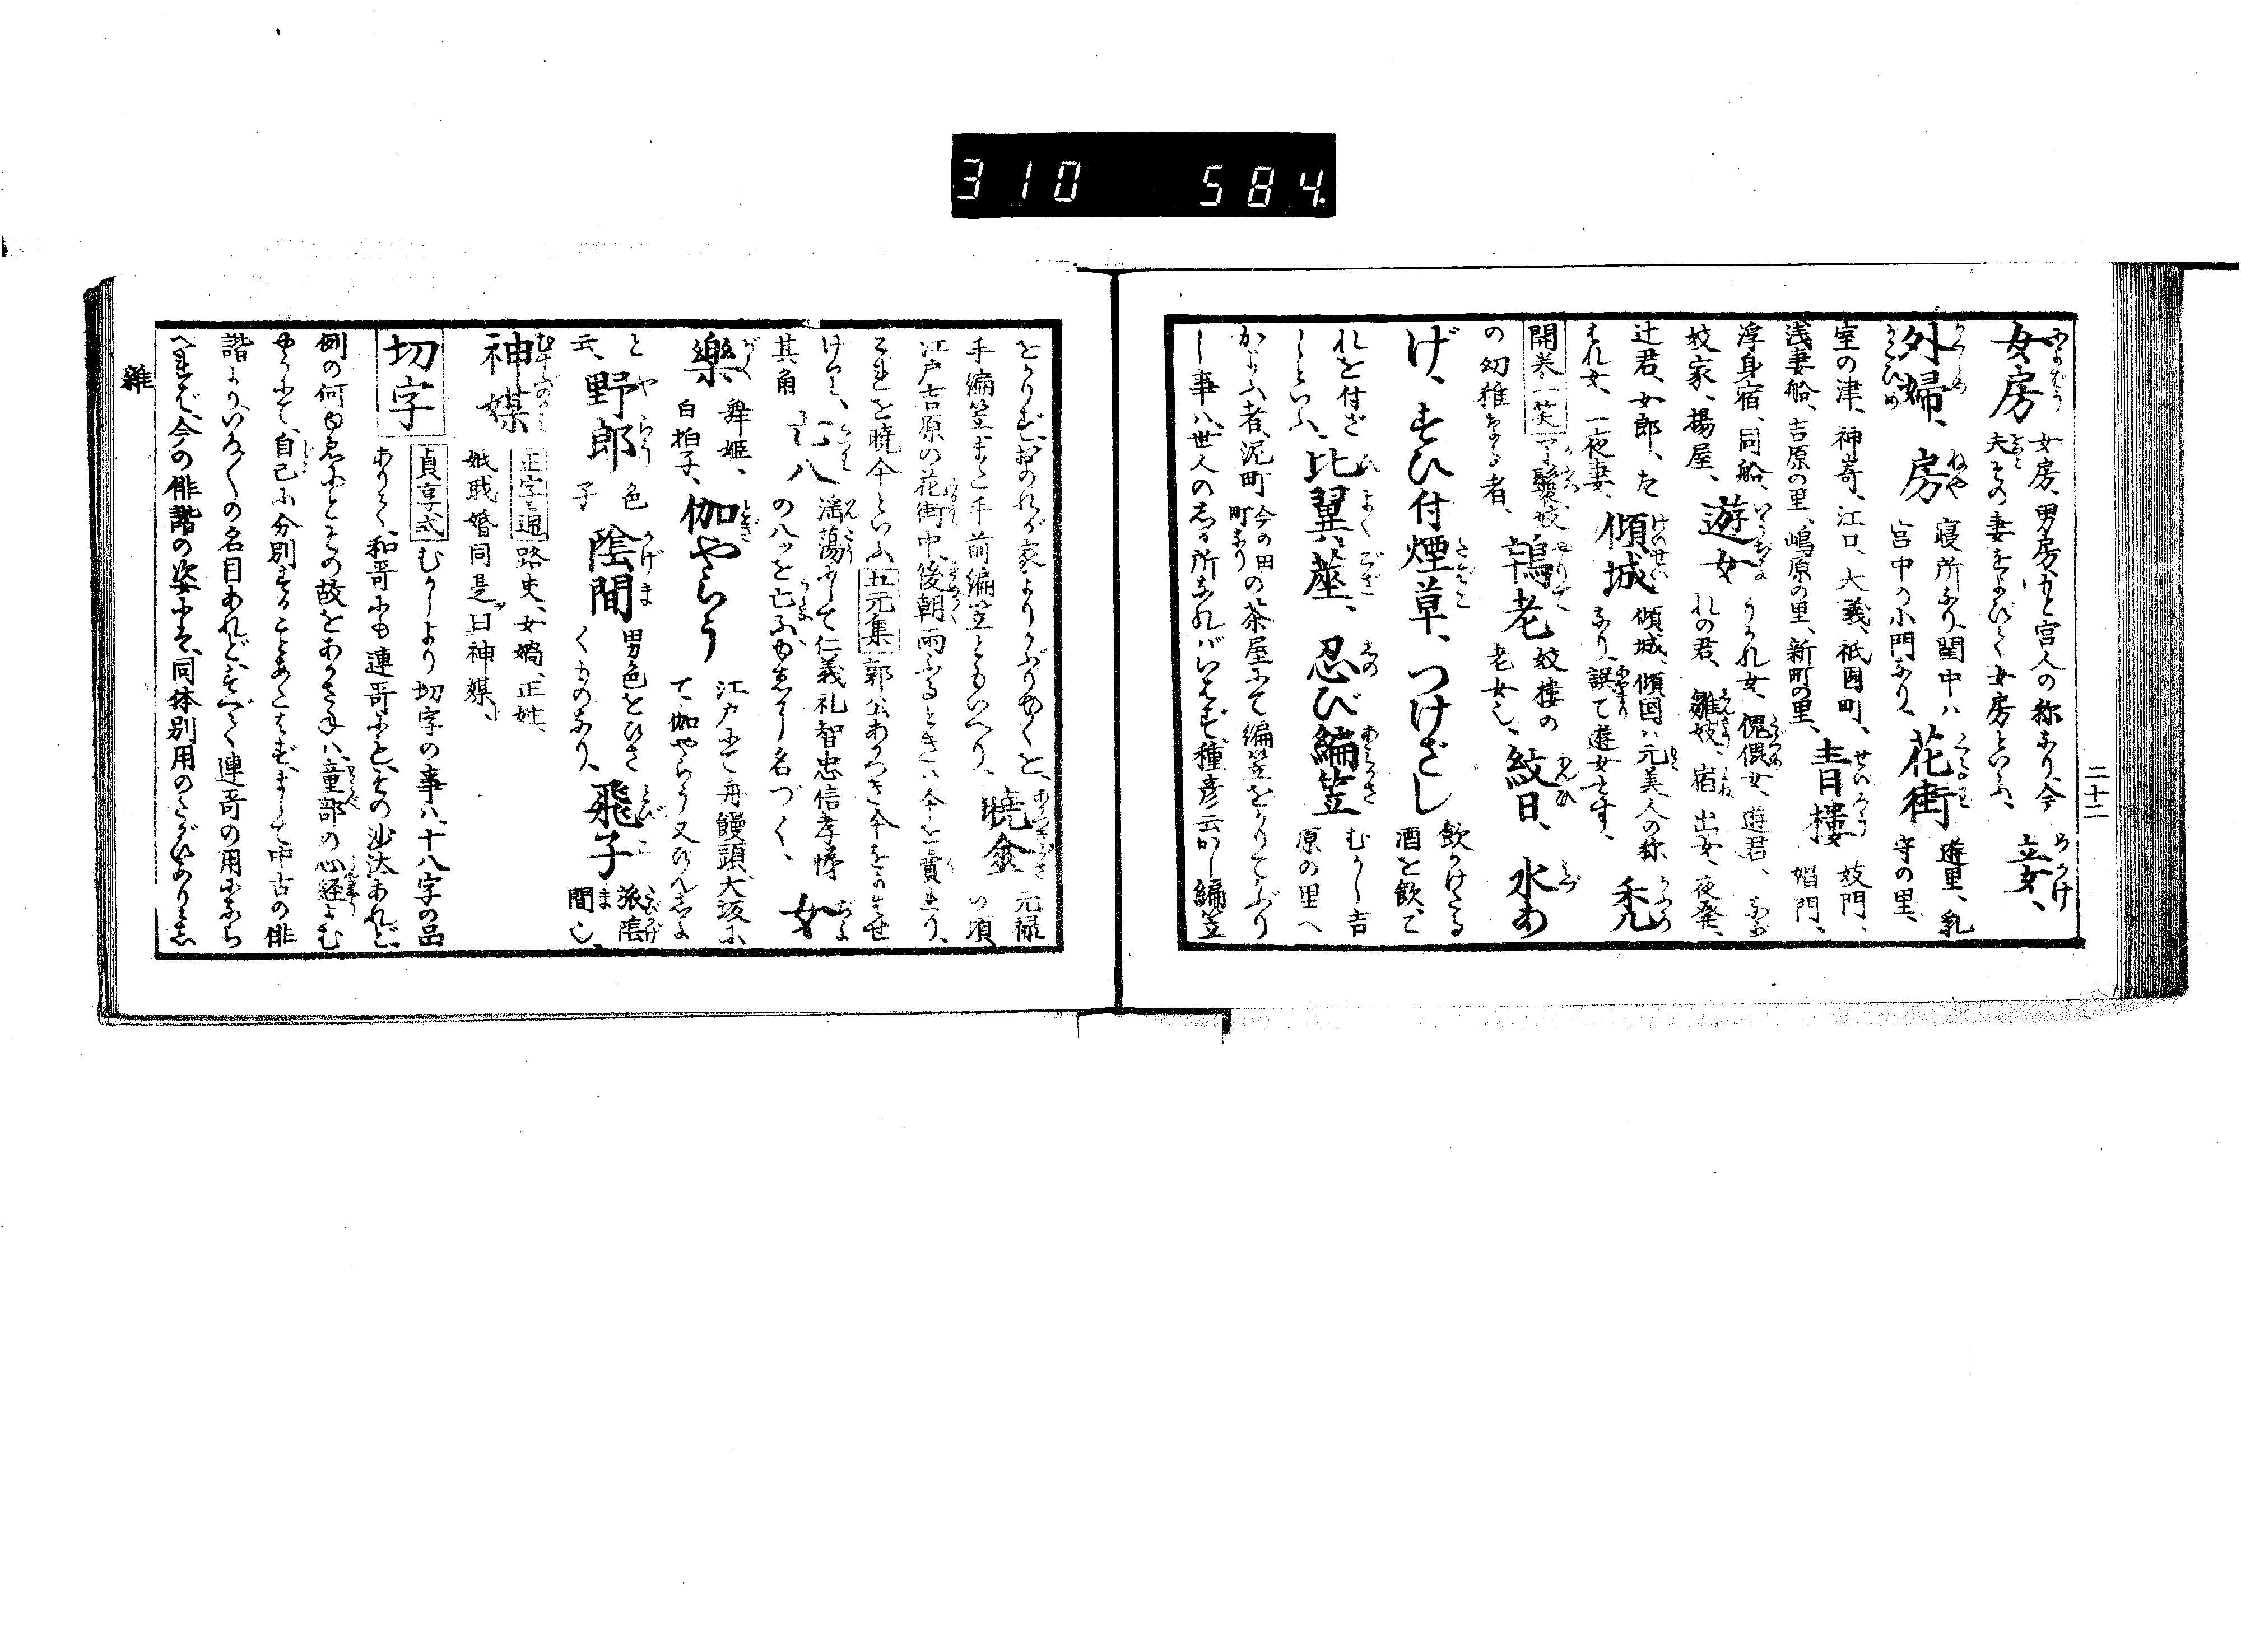 310 584
二十二
女房 女房、男房、もと宮人の称なり、今
夫その妻をよびて女房といふ、妾、
外婦、房 寝所なり、閨中ハ
宮中の小門なり、花街 遊里、乳
守の里、
室の津、神嵜、江口、大義、祇園町、
浅妻船、吉原の里、嶋原の里、新町の里、青樓 妓門、
娼門、
浮身宿、同船、
妓家、揚屋、遊女 うかれ女、傀儡女、遊君、
れの君、雛妓、宿、出女、夜発、
辻君、女郎、た
はれ女、一夜妻、傾城 傾城、傾国ハ元美人の称
なり、誤て遊女とす、禿
開巻一笑 丫鬟
の幼稚なる者、鴇老 妓楼の
老女也、紋日、水あ
げ、すひ付煙草、つけざし 飲かけたる
酒を飲、て
れを付ざ
しといふ、比翼蓙、忍び編笠 むかし吉
原の里へ
かよふ者、泥町 今の田
町なり の茶屋にて編笠をかりてかぶり
し事ハ、世人のしる所なれバいはず、種彦云むかし編笠
をかりず、おのれが家よりかぶりゆくを、
手編笠また手前編笠ともいへり、暁傘 元禄
の頃
江戸吉原の花街中、後朝雨ふるときハ傘を賣れり、
これを暁傘といふ 五元集 郭公あかつき傘をかはせ
けり、
其角 亡八 滛蕩にして仁義礼智忠信孝悌
の八ッを亡ふゆゑに名づく、女
樂 舞姫、
白拍子、伽やらう 江戸にて舟饅頭、大坂に
て、伽やらう又びんしよ
と
云、野郎 色
子 陰間 男色をひさ
くものなり、飛子 旅陰
間也、
神媒 正字通 路史、女媧、正姓
氏職婚同是曰神媒、
切字 貞享式 むかしより切字の事ハ、十八字の品
ありて、和哥にも連哥にも、その沙汰あれど、
例の何ゆゑにとその故をあかさねハ、童部の心経よむ
やうにて、自己に分別することあたはず、まして中古の俳
諧よりいろ〳〵の名目あれど、すべて連哥の用にならハ
へすバ、今の俳諧の姿にハ、同体別用のたがひありとし
雜